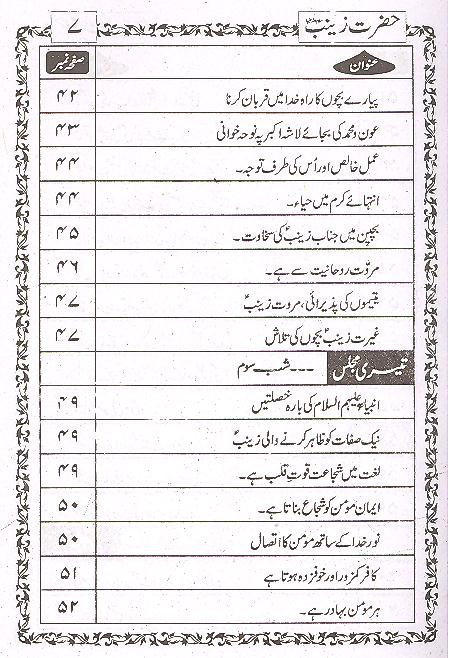 حضرت زینب ۷
عنوان صفحہ نمبر
پیارے بچوں کا راہ خدا میں قربان کرنا ۴۲
عون و محمد کی بجائے لاشہ اکبر پہ نوحہ خوانی ۴۳
عمل خالص اور اُس کی طرف توجہ۔ ۴۴
انتہائے کرم میں حیاء۔ ۴۴
بچپن میں جناب زینبؑ کی سخاوت۔ ۴۵
مروّت روحانیت سے ہے۔ ۴۶
یتیموں کی پذیرائی، مروت زینبؑ ۴۷
غیرت زینبؑ بچوں کی تلاش ۴۷
تیسری مجلس ۔۔۔ شب سوم
انبیاء علیہم السلام کی بارہ خصلتیں ۴۹
نیک صفات کو ظاہر کرنے والی زینبؑ ۴۹
لغت میں شجاعت قوتِ قلب ہے۔ ۴۹
ایمان مومن کو شجاع بناتا ہے۔ ۵۰
نور خدا کے ساتھ مومن کا اتصال ۵۰
کافر کمزور اور خوفزدہ ہوتا ہے ۵۱
ہر مومن بہادر ہے۔ ۵۲